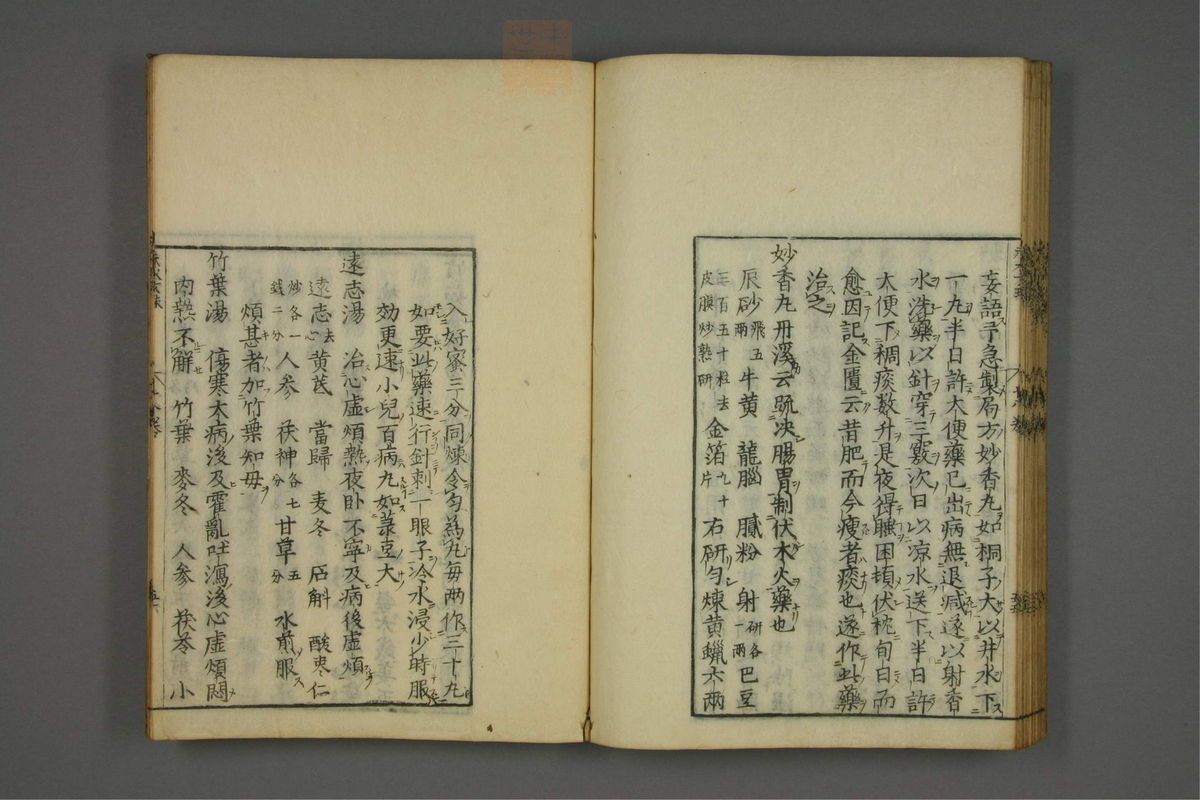 妄語予急製局方妙香丸如桐子大以井水下
一丸半日許大便藥已出病無退减遂以射香
水洗藥以針穿三竅次日以凉水送下半日許
大便下稠痰数升是夜得睡困頓伏枕旬日而
愈因記金匱云昔肥而今瘦者痰也遂作此藥
治之
妙香丸丹溪云疏决腸胃制伏木火藥也
辰砂飛五兩牛黄 龍腦 膩粉 射研各一兩巴豆
三百五十粒去皮膜炒熟研 金箔九十片 右研匀煉黄蠟六兩
入好蜜三分同煉令匀為丸每两作三十丸
如要此藥速行針刺一眼子冷水浸少時服
効更速小兒百病丸如菉豆大
遠志湯 治心虛煩熱夜卧不寧及病後虛煩
遠志去心黄芪 當歸 麦冬 石斛 酸棗仁
炒各一錢二分人參 茯神各七分甘草五分 水煎服
煩甚者加竹葉知母
竹葉湯 傷寒大病後及霍亂吐瀉後心虛煩悶
内熱不解 竹葉 麥冬 人參 茯苓 小